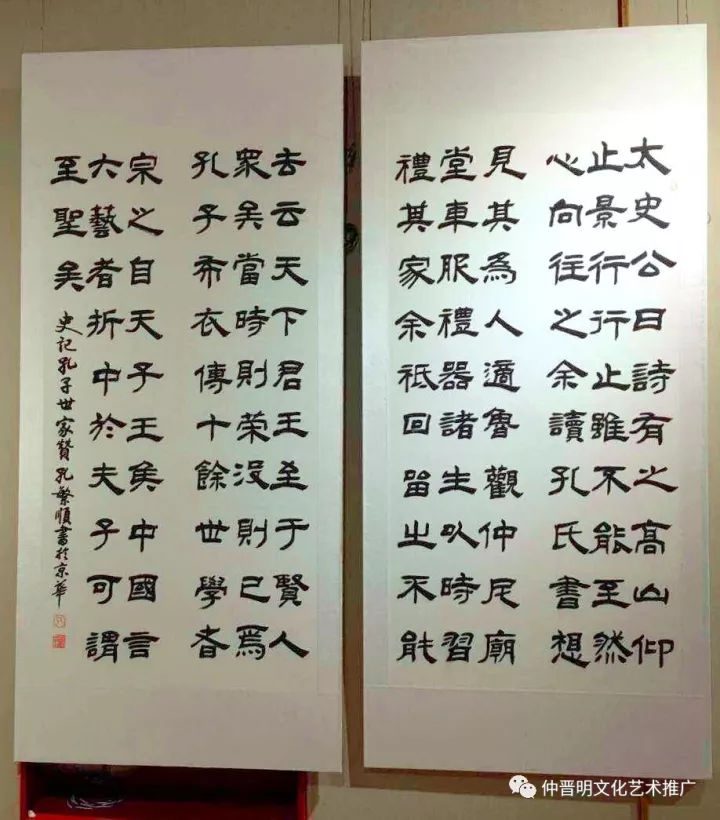 太史公曰詩有之高山仰
止景行行止雖不能至然
心向往之余讀孔氏書想
見其為人適魯觀仲尼廟
堂車服禮器諸生以時習
禮其家余祗回留之不能
去云天下君王至于賢人
眾矣當時則榮沒則已焉
孔子布衣傳十餘世學者
宗之自天子王侯中國言
六藝者折中於夫子可謂
至聖矣
史記孔子世家贊孔繁順書於京華
仲晋明文化艺术推广